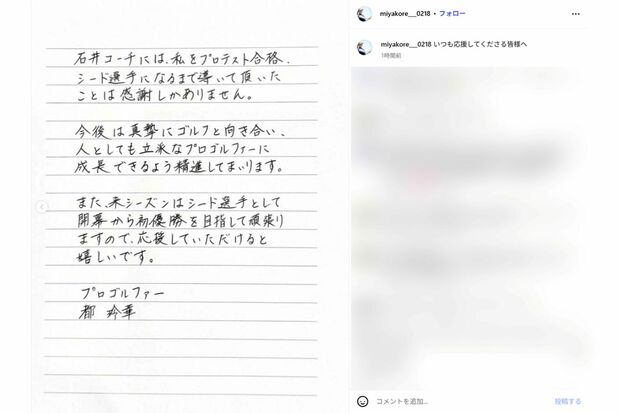 石井コーチには、私をプロテスト合格、
シード選手になるまで導いて頂いた
ことは感謝しかありません。
今後は真摯にゴルフと向き合い、
人としても立派なプロゴルファーに
成長できるよう精進してまいります。
また、来シーズンはシード選手として
開幕から初優勝を目指して頑張り
ますので、応援していただけると
嬉しいです。
プロゴルファー
都 玲華
miyakore__0218 • フォロー
miyakore__0218 いつも応援してくださる皆様へ
1時間前
コメントを追加...
投稿する